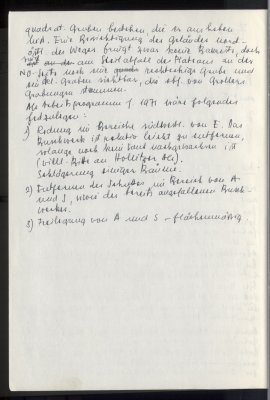 quadrat. Gruben bestehen, die er ausheben
ließ. Eine Besichtigung des Geländes nord-
östl. des Weges bringt zwar keine Baureste, doch
am Steilabfall des Plateaus an der
NO-Seite noch eine rechteckige Grube und
ein Graben sichtbar, die off. von Grollers
Grabungen stammen.
Als Arbeitsprogramm f. 1971 wäre folgendes
festzulegen:
1) Rodung im Bereiche südwestl. von E. Das
Buschwerk ist relativ leicht zu entfernen,
solange noch kein Laub nachgewachsen ist
(evtl. Bitte an Hollitzer etc).
Schlägerung einiger Bäume.
2) Entfernen des Schuttes im Bereich von A
und S, sowie des bereits angefallenen Busch-
werkes.
3) Freilegung von A und S – flächenmäßig